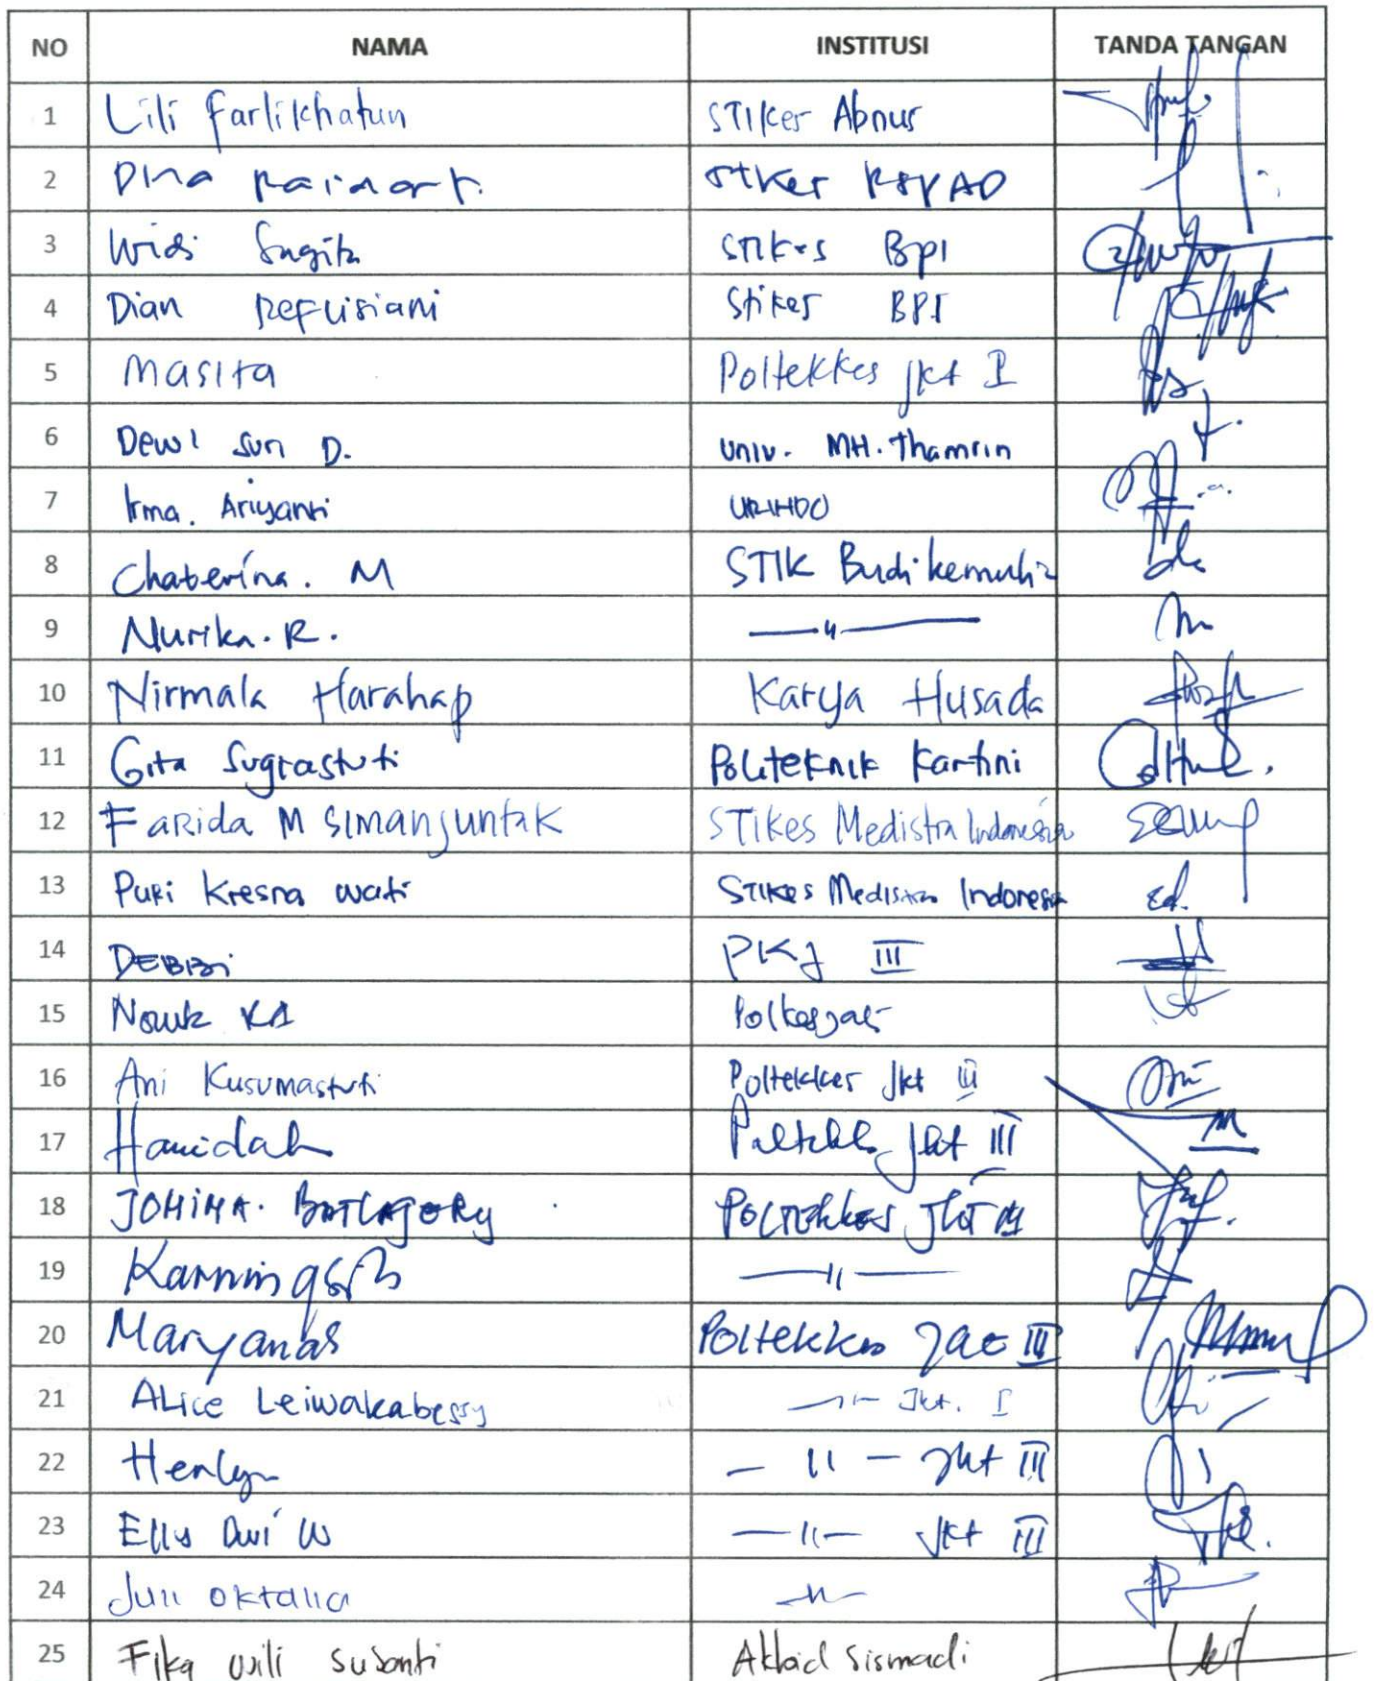 NO NAMA INSTITUSI TANDA TANGAN
1 Lili Farlikhatun STIKes Abnus
2 Dina Raidart. STIKes RSPAD
3 Widi Sagita STIKes BPI
4 Dian Reflisiani Stikes BPI
5 Masita Poltekkes Jkt I
6 Dewi Suri D. Univ. MH. Thamrin
7 Irma. Ariyanti URINDO
8 Chaterina. M STIK Budi kemulia
9 Nurika. R. — 〃 —
10 Nirmala Harahap Karya Husada
11 Gita Sugrastuti Politeknik Kartini
12 Farida M Simanjuntak STIKes Medistra Indonesia
13 Puri Kresna wati STIKes Medistra Indonesia
14 DEBBI PKJ III
15 KA
16 Ani Kusumastuti Poltekkes Jkt III
17 Hamidah Poltekkes Jkt III
18 JOMIMA. BATLAJERY Poltekkes Jkt III
19 — 〃 —
20 Maryanah Poltekkes Jkt III
21 Alice Leiwakabessy — 〃 — Jkt. I
22 Herlyn — 〃 — Jkt III
23 Elly Dwi W — 〃 — Jkt III
24 Juli Oktalia — 〃 —
25 Fika Wili Susanti Akbid Sismadi